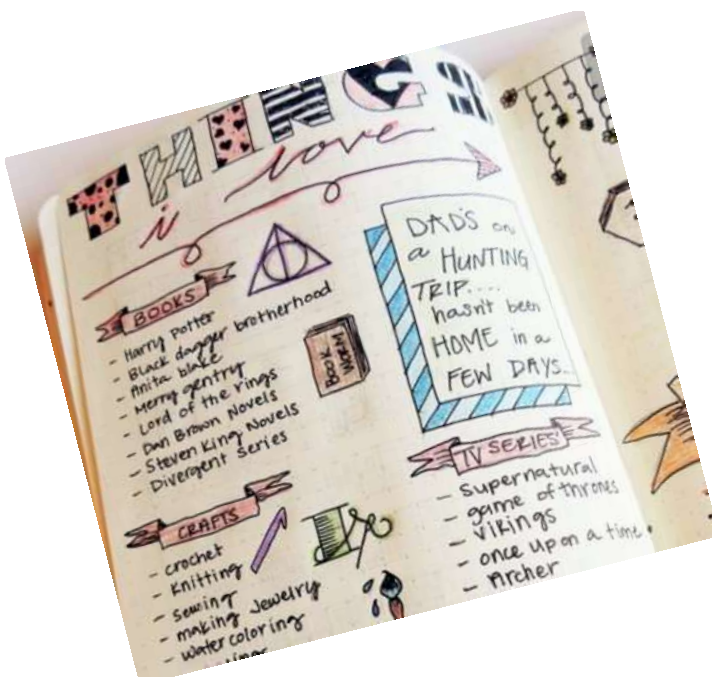 THINGS
i love
BOOKS
- Harry Potter
- Black dagger brotherhood
- Anita blake
- Merry gentry
- Lord of the rings
- Dan Brown Novels
- Steven King Novels
- Divergent Series
BOOK
WORM
CRAFTS
- crochet
- Knitting
- sewing
- making Jewelry
- watercoloring
DAD'S on
a HUNTING
TRIP....
hasn't been
HOME in a
FEW DAYS..
TV SERIES'
- Supernatural
- game of thrones
- Vikings
- once upon a time.
- Archer